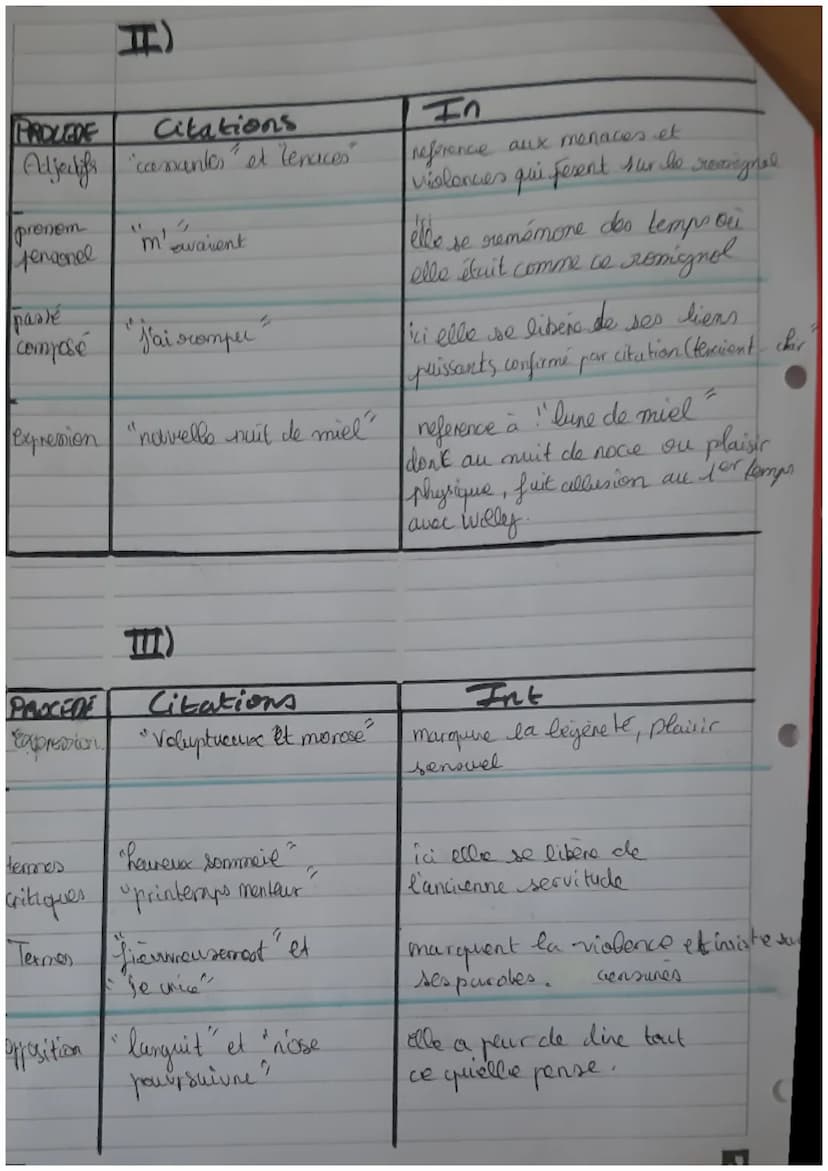 II)
PROCEDE Citations In
Adjectifs "cassantes" et "tenaces" reference aux menaces et
violences qui pesent sur le rossignol
pronom "m'avaient" elle se remémore des temps où
personel elle était comme ce rossignol
passé "j'ai rompu" ici elle se libère de ses liens
composé puissants, confirmé par citation (tenaient chair
expression "nouvelle nuit de miel" reference à "lune de miel"
dont au nuit de noce ou plaisir
physique, fait allusion au 1er temps
avec Willy.
III)
PROCEDÉ Citations Int
Expression "Voluptueux et morose" marque la légèreté, plaisir
sensuel
termes "heureux sommeil" ici elle se libère de
critiques "printemps menteur" l'ancienne servitude
Termes "fiévreusement" et marquent la violence et insiste su
"Je crie" ses paroles. censurés
opposition "languit" et "n'ose Elle a peur de dire tout
poursuivre" ce qu'elle pense.